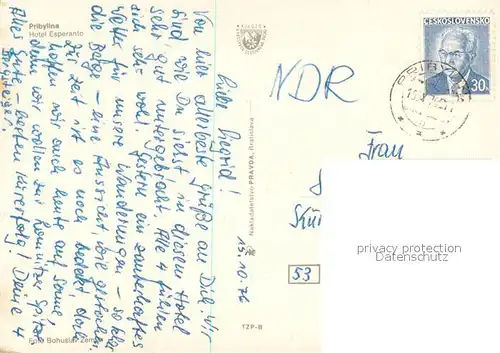 Pribylina
Hotel Esperanto
Liebe Ingrid!
Von hier allerbeste Grüße an Dich. Wir
sind, wie Du siehst in diesem Hotel
sehr gut untergebracht. Alle 4 fühlen
sich sehr wohl. Gestern ein zauberhaftes
Wetter für unsere Wanderungen – so klar
die Berge – eine Aussicht, wie gestochen.
Zur Zeit ist es noch bedeckt, doch
hoffen wir auch heute auf Sonne,
denn wir wollen zur Lomnitzer Spitze
Alles Gute – besten Kurerfolg! Deine 4
Foto Bohuslav
15.10.76
Nakladateľstvo PRAVDA, Bratislava
TZP-B
53
NDR
Frau
ČESKOSLOVENSKO
30
PRIBYLINA
privacy protection
Datenschutz